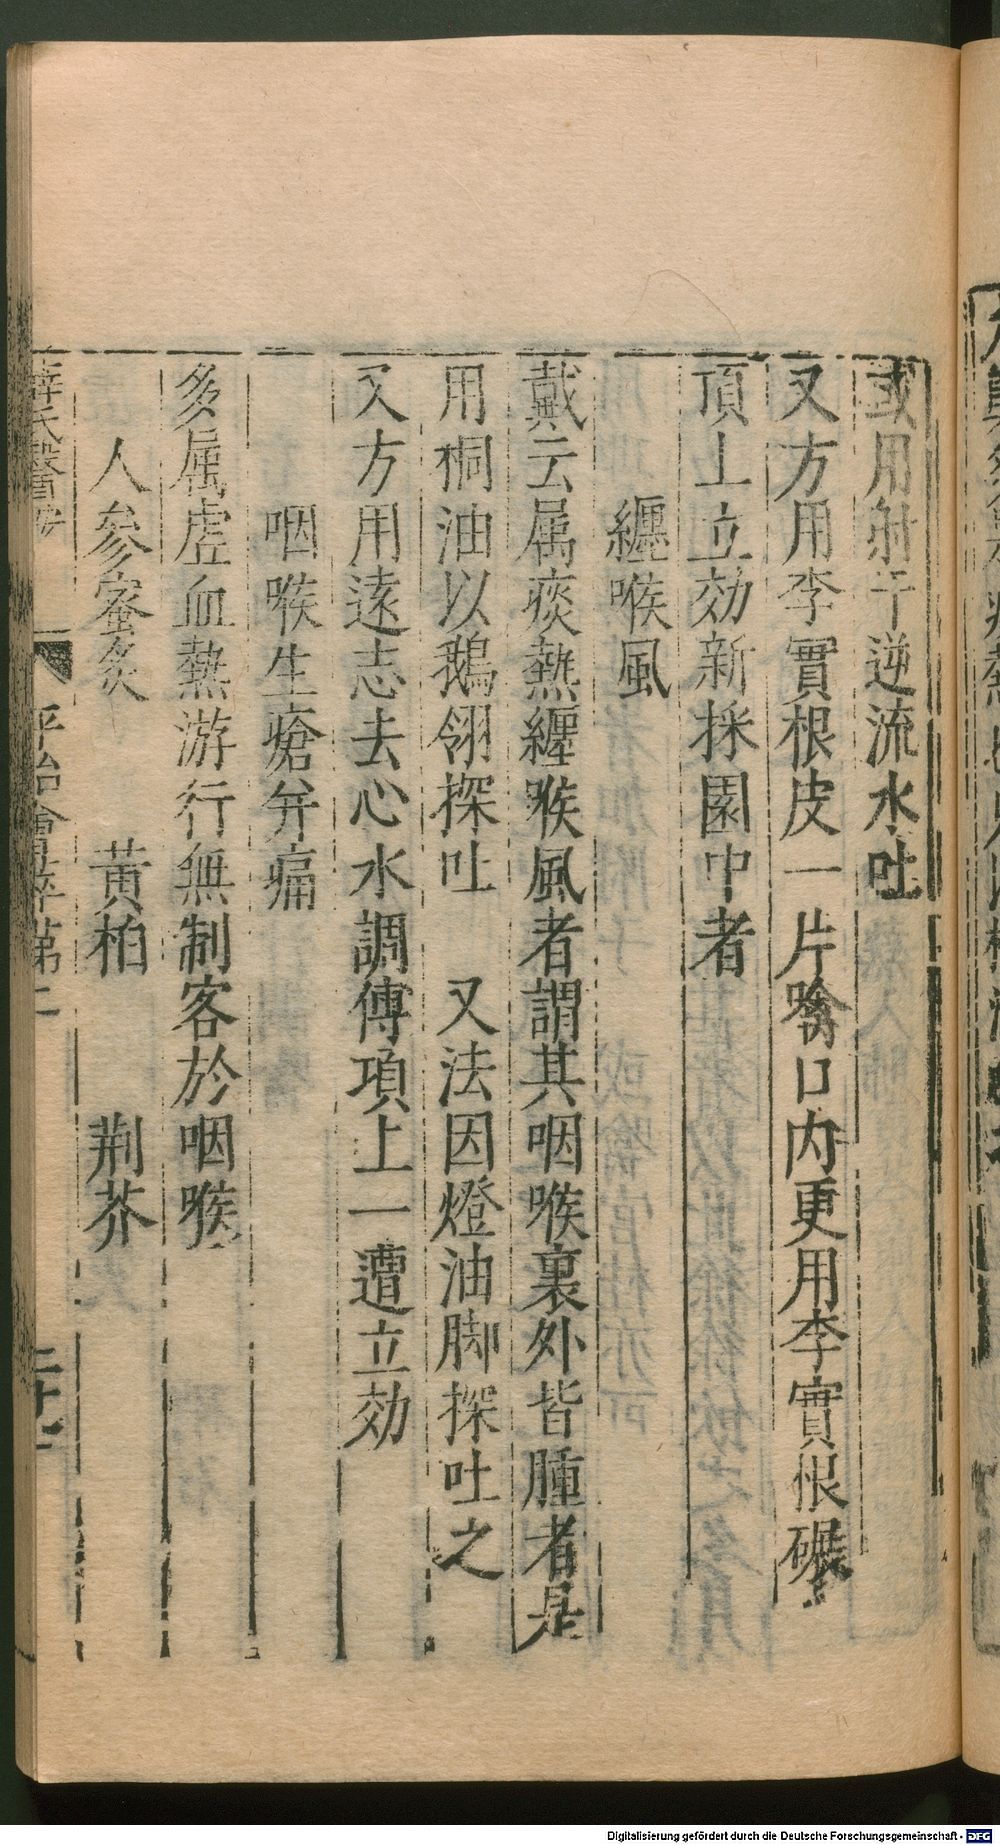 或用射干逆流水吐
又方用李實根皮一片噙口内更用李實根碾
頂上立効新採園中者
纒喉風
戴云属痰熱纒喉風者謂其咽喉裏外皆腫者是
用桐油以鵝翎探吐　又法因燈油脚探吐之
又方用遠志去心水調傅項上一遭立効
咽喉生瘡并痛
多属虚血熱游行無制客於咽喉
人參蜜炙　黃柏　荆芥
平治會萃第二
二十七
Digitalisierung gefördert durch die Deutsche Forschungsgemeinschaft - DFG